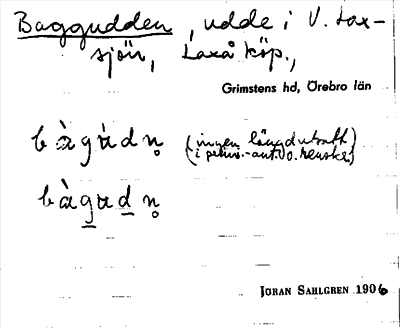 Baggudden, udde i V. Lax-
sjön, Laxå köp.,
Grimstens hd, Örebro län
bàgàdn̥ (ingen längdutsatt)
(i prim.-ant. o. renskr.)
bàgadn̥
JÖRAN SAHLGREN 1906